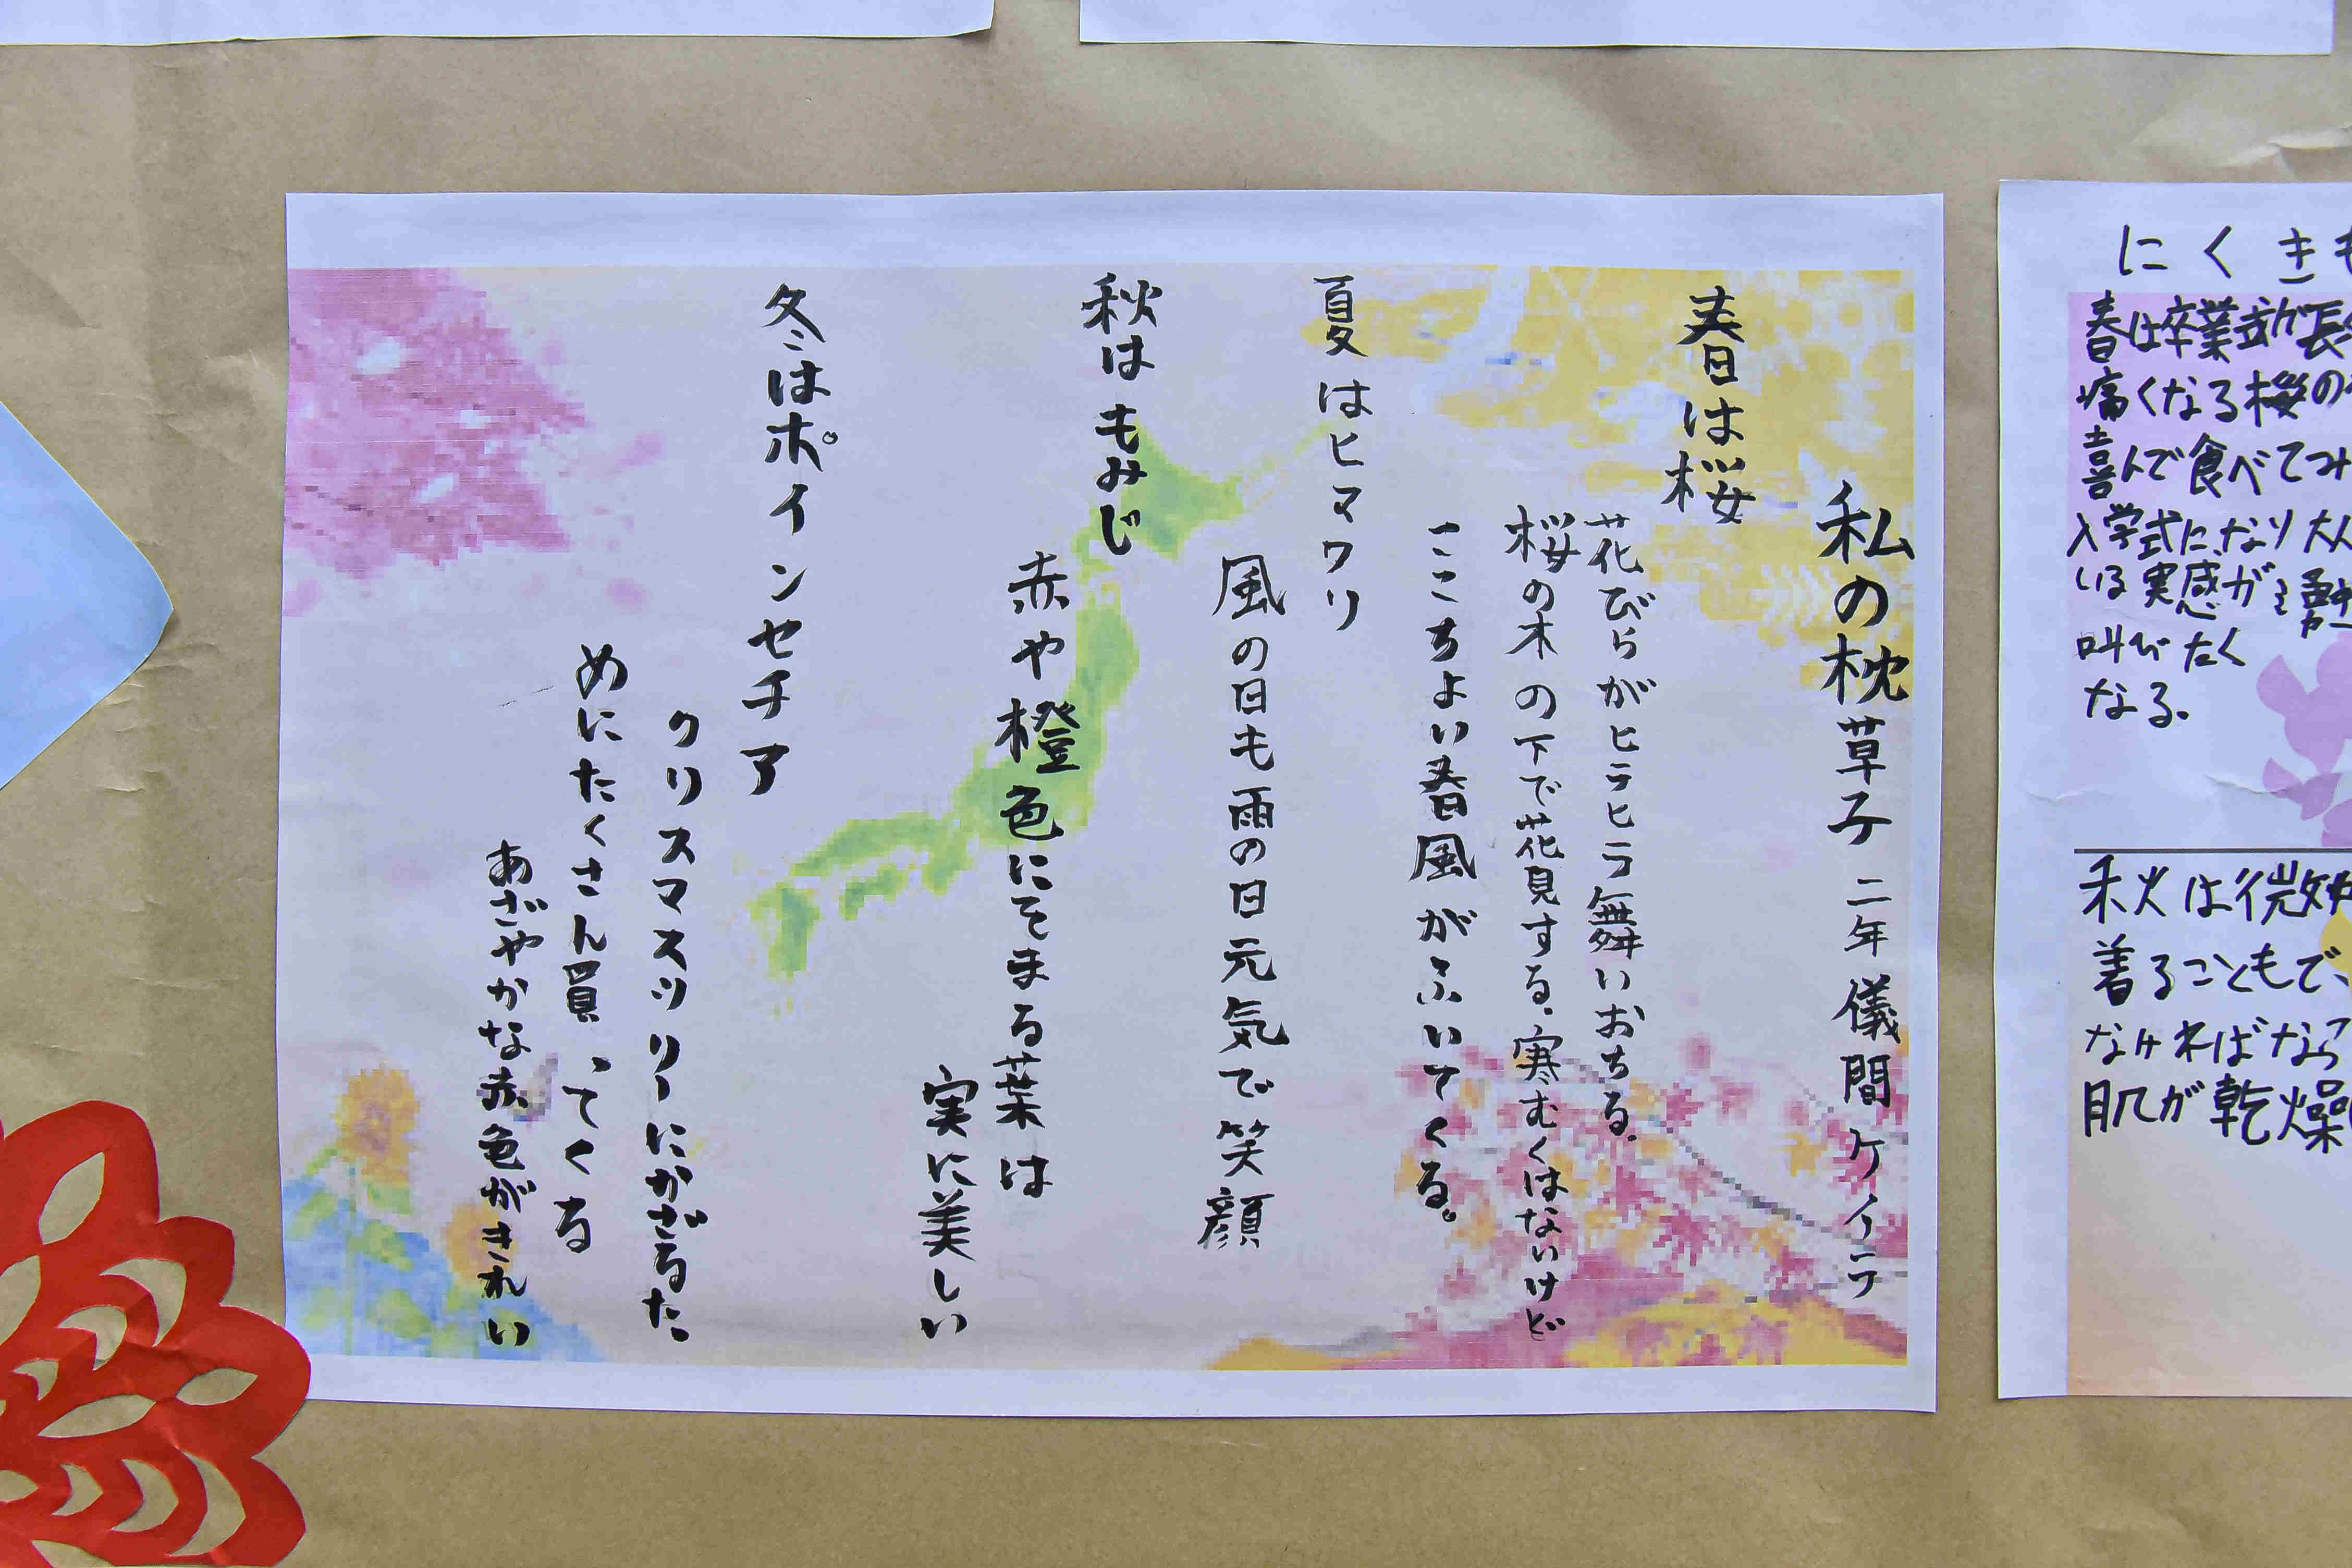 私の枕草子 二年 儀間 ケイテ
春は桜
花びらがヒラヒラ舞いおちる.
桜の木の下で花見する.寒むくはないけど
ここちよい春風がふいてくる。
夏はヒマワリ
風の日も雨の日元気で笑顔
秋はもみじ
赤や橙色にそまる葉は
実に美しい
冬はポインセチア
クリスマスツリーにかざるた
めにたくさん買ってくる
あざやかな赤色がきれい
にくき
春は卒業式が長
痛くなる桜の
喜んで食べてつみ
入学式になり大人
いる実感が
叫びたく
なる.
秋は微妙
着ることもで、
なければなら
肌が乾燥